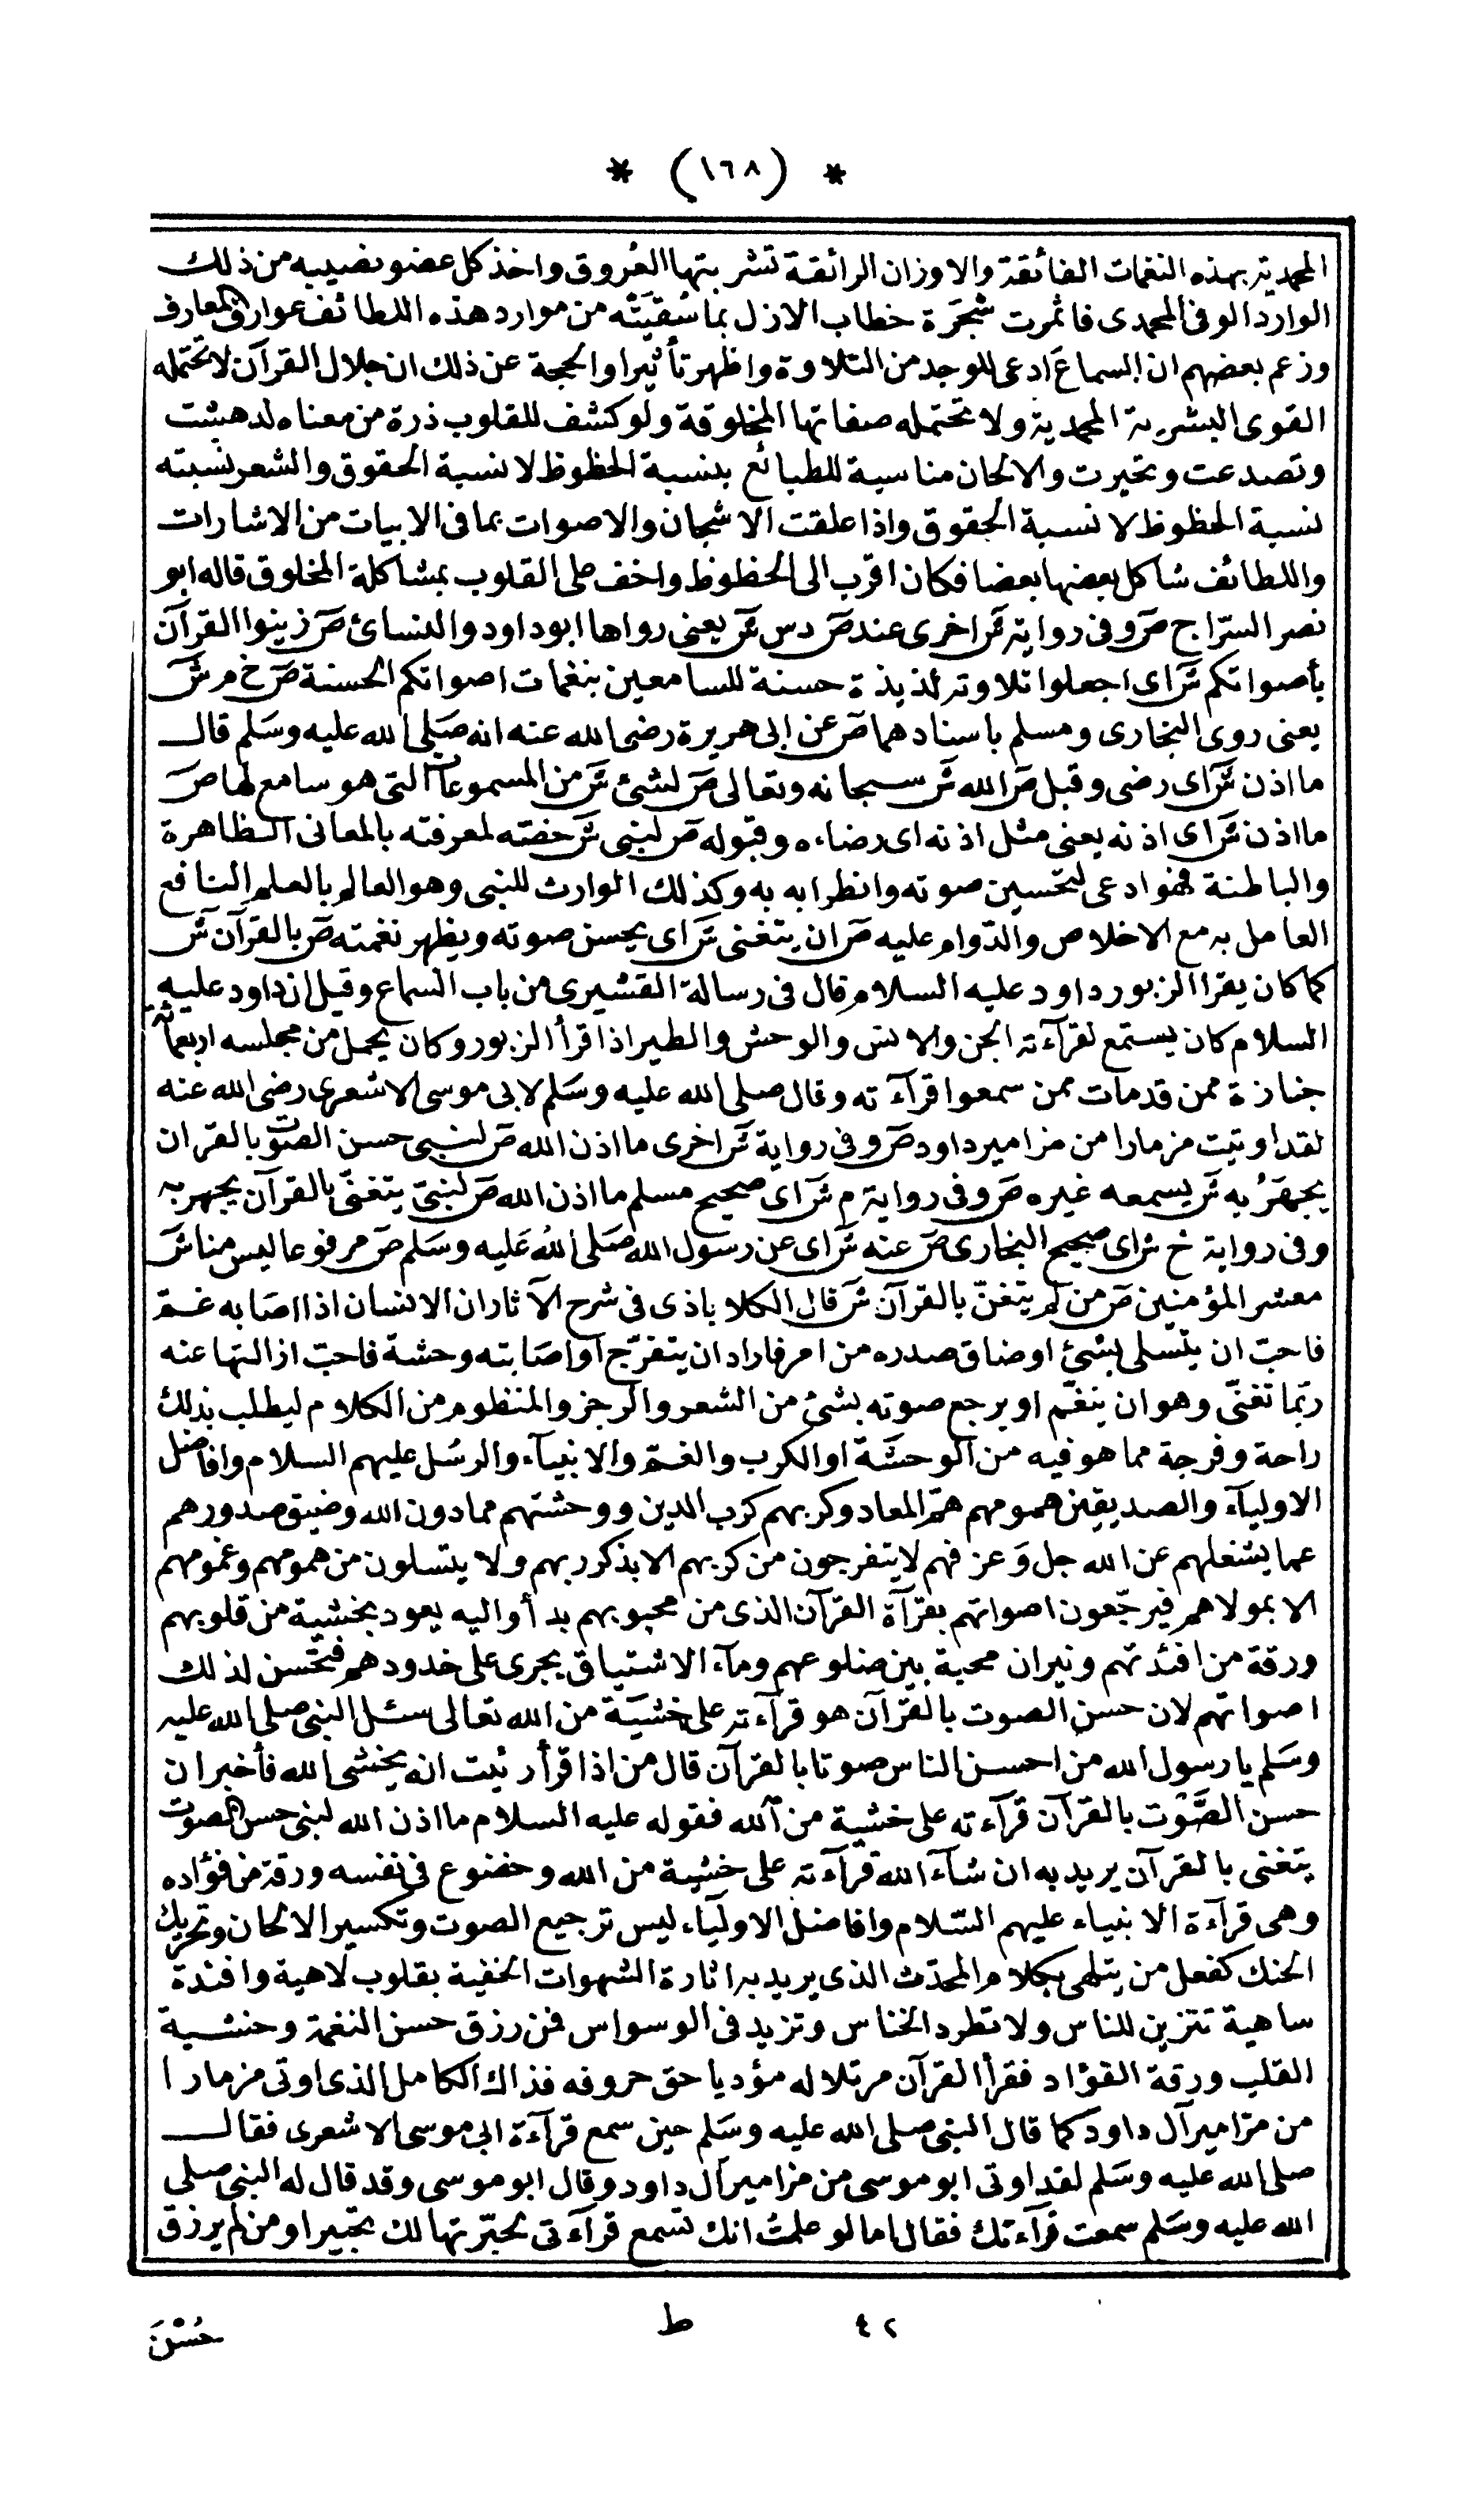 * (١٦٨) *
المحمدية بهذه النغمات الفائقة والاوزان الرائقة تشربتها العُروق واخذ كل عضو نصيبه من ذلك
الوارد الوفى المحمدى فاثمرت شجَرة خطاب الازل بما سُقيَتْه من موارد هذه اللطائف عوارف المعارف
وزعم بعضهم ان السماعَ ادعى للوجد من التلاوة واظهر تأثيرا والحجة عن ذلك ان جلال القرآن لا تحتمله
القوى البشرية المحمدية ولا تحتمله صفاتها المخلوقة ولو كشف للقلوب ذرة من معناه لدهشت
وتصدعت وتحيرت والالحان مناسبة للطبائع بنسبة الحظوظ لا نسبة الحقوق والشعر نسبته
نسبة الحظوظ لا نسبة الحقوق واذا علقت الاشجان والاصوات بما فى الابيات من الاشارات
واللطائف شاكل بعضها بعضا فكان اقرب الى الحظوظ واخف على القلوب بمشاكلة المخلوق قاله ابو
نصر السرّاج ص وفى رواية ش اخرى عند ص دس ش يعنى رواها ابو داود والنسائ ص زينوا القرآن
بأصواتكم ش اى اجعلوا تلاوته لذيذة حسنة للسامعين بنغمات اصواتكم الحسنة ص خ م ش
يعنى روى البخارى ومسلم باسنادهما ص عن ابى هريرة رضى الله عنه انه صَلى الله عليه وسَلم قال
ما اذن ش اى رضى وقبل ص الله ش سبحانه وتعالى ص لشئ ش من المسموعات التى هو سامع لها ص
ما اذن ش اى اذنه يعنى مثل اذنه اى رضاءه وقبوله ص لنبى ش خصّه لمعرفته بالمعانى الظاهرة
والباطنة فهو ادعى لتحسين صوته وانطرابه به وكذلك الوارث للنبى وهو العالم بالعلم النافع
العامل به مع الاخلاص والدّوام عليه ص ان يتغنى ش اى يحسن صوته ويظهر نغمته ص بالقرآن ش
كما كان يقرا الزبور داود عليه السلام قال فى رسالة القشيرى من باب السماع وقيل ان داود عليه
السلام كان يستمع لقرآءته الجن والانس والوحش والطير اذا قرأ الزبور وكان يحمل من مجلسه اربعمائة
جنازة ممن قد مات ممن سمعوا قرآءته وقال صلى الله عليه وسَلم لابى موسى الاشعرى رضى الله عنه
لقد اوتيت مزمارا من مزامير داود ص وفى رواية ش اخرى ما اذن الله ص لنبى حسن الصّوت بالقران
يجهَرُ به ش يسمعه غيره ص وفى رواية م ش اى صحيح مسلم ما اذن الله ص لنبىّ يتغنّى بالقرآن يجهر به
وفى رواية خ ش اى صحيح البخارى ص عنه ش اى عن رسول الله صَلى اللهُ عَليه وسَلم ص مرفوعا ليس منا ش
معشر المؤمنين ص من لم يتغنّ بالقرآن ش قال الكلاباذى فى شرح الآثار ان الانسان اذا اصَابه غمّ
فاحبّ ان يتسلى بشئ او ضاق صدره من امر فاراد ان يتفرّج او اصَابته وحشة فاحبّ ازالتها عنه
ربّما تغنّى وهو ان ينغّم او يرجع صوته بشئ من الشعر والرجز والمنظوم من الكلام ليطلب بذلك
راحة وفرجة مما هو فيه من الوحشَة او الكرب والغمّ والانبيآء والرسُل عليهم السلام وافاضل
الاوليآء والصديقين همومهم همّ المعاد وكربهم كرب الدين ووحشتهم مما دون الله وضيق صدورهم
عما يشغلهم عن الله جل وَعز فهم لا يتفرجون من كربهم الا بذكر ربهم ولا يتسلون من همومهم وغمومهم
الا بمولاهم فيرجّعون اصواتهم بقرآة القرآن الذى من محبوبهم بدأ واليه يعود بخشية من قلوبهم
ورقة من افئدتهم ونيران محبة بين ضلوعهم ومآء الاشتياق يجرى على خدودهم فتحَسن لذلك
اصواتهم لان حسن الصوت بالقرآن هو قرآءته على خشيَة من الله تعالى سئل النبى صلى الله عليه
وسَلم يا رسول الله من احسن الناس صوتا بالقرآن قال من اذا قرأ رئيت انه يخشى الله فأخبر ان
حسن الصَّوْت بالقرآن قرآءته على خشية من الله فقوله عليه السلام ما اذن الله لنبى حسن الصوت
يتغنى بالقرآن يريد به ان شآء الله قرآءته على خشية من الله وخضوع فى نفسه ورقة من فؤاده
وهى قرآءة الانبياء عليهم السّلام وافاضل الاوليآء ليس ترجيع الصوت وتكسير الالحان وتحريك
الحنك كفعل من يتلهى بكلام المحدَث الذى يريد به اثارة الشهوات الخفية بقلوب لاهية وافئدة
ساهية تتزين للناس ولا تطرد الخناس وتزيد فى الوسواس فمن رزق حسن النغمة وخشية
القلب ورقة الفؤاد فقرأ القرآن مرتلا له مؤديا حق حروفه فذاك الكامل الذى اوتى مزمارا
من مزامير آل داود كما قال النبى صلى الله عليه وسَلم حين سمع قرآءة ابى موسى الاشعرى فقال
صلى الله عليه وسَلم لقد اوتى ابو موسى من مزامير آل داود وقال ابو موسى وقد قال له النبى صلى
الله عليه وسَلم سمعت قرآءتك فقال اما لو علمتُ انك تسمع قرآءتى لحبّرتها لك تحبيرا ومن لم يرزق
٤٢ ط حُسْنَ